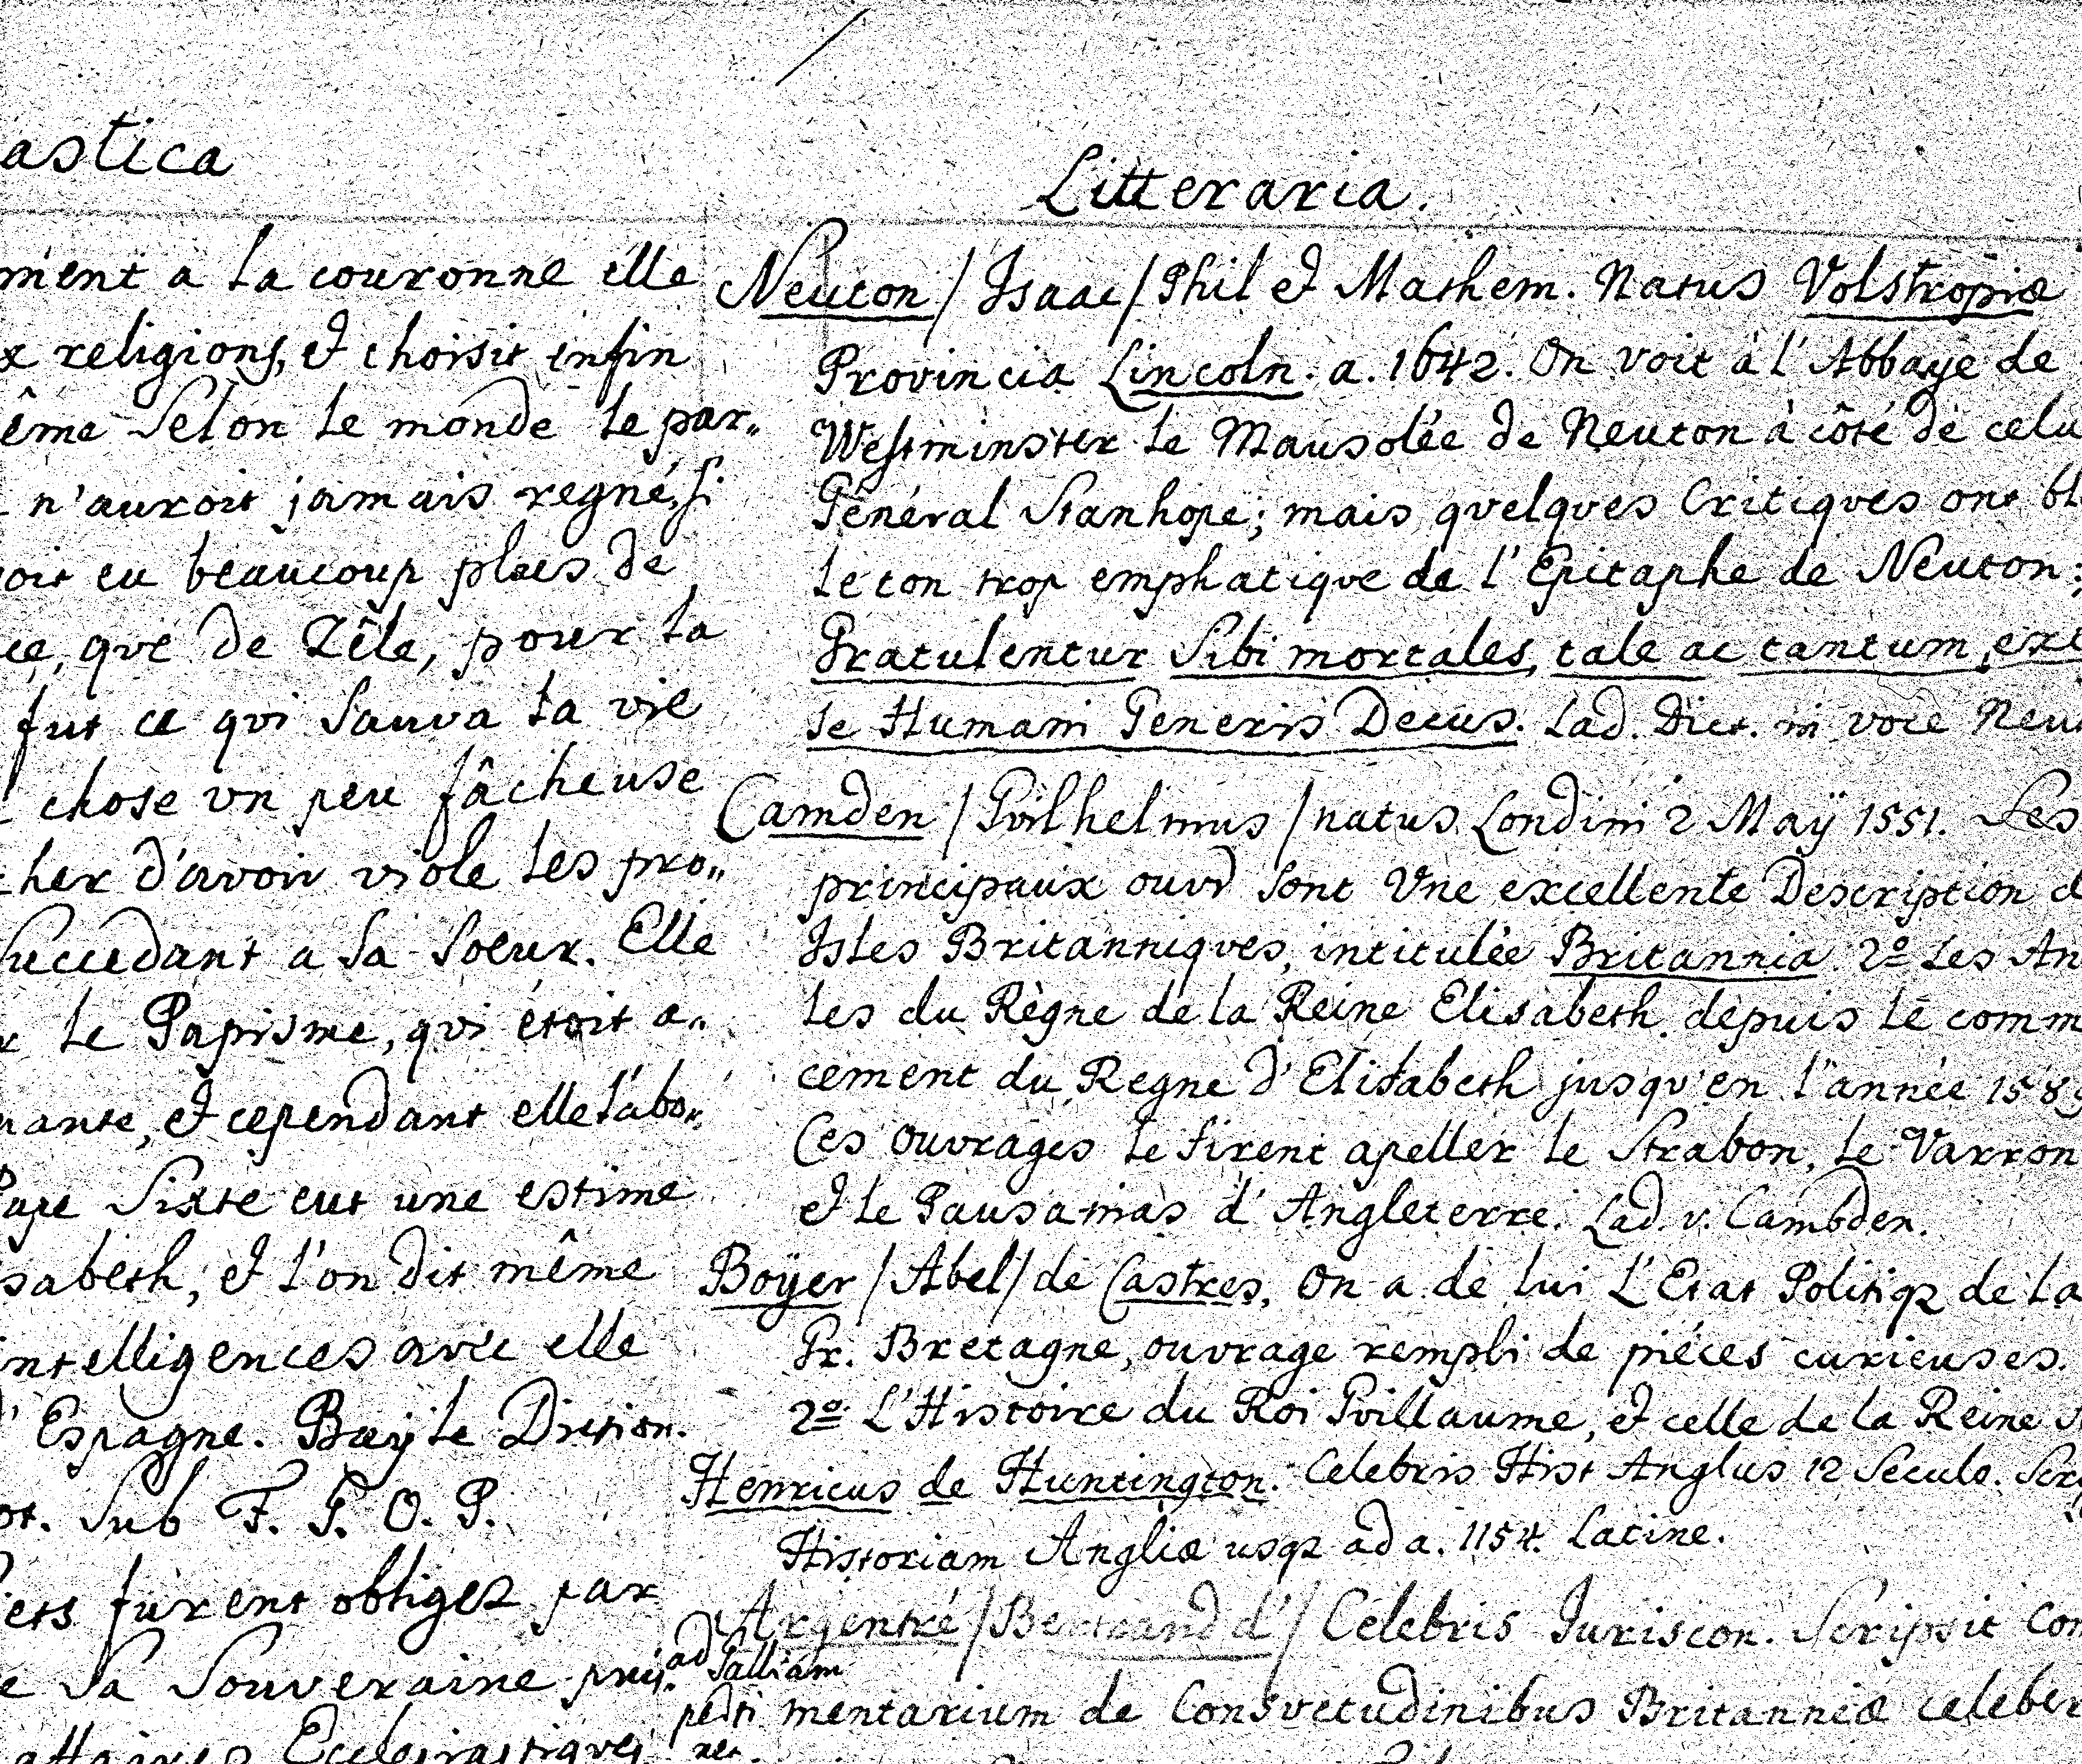 astica
ment a la couronne elle
x religions, et choisit enfin
ême selon le monde le par„
n'auroit jamais regné, si
oit eu beaucoup plus de
ce, que de Zêle, pour la
fut ce qui sauva la vie
chose vn peu fâcheuse
cher d'avoir viole les pro„
succedant a sa soeur. Elle
le Papisme, qui étoit a„
nante, et cependant elle l'abo„
Pape Sixte eut une estime
sabeth, et l'on dit même
intelligences avec elle
d'Espagne. Bayle Diction.
ot. sub F. G. O. P.
furent obligez par
e sa Souveraine
affaires Ecclesiastiques
Litteraria.
Neuton / Isaac / Phil et Mathem. Natus Volstropiæ
Provincia Lincoln. a. 1642. On voit à l'Abbaye de
Westminster le Mausolée de Neuton à côté de celu
Général Stanhope; mais quelques Critiques ont bl
le ton trop emphatique de l'Epitaphe de Neuton:
Gratulentur Sibi mortales, tale ac tantum ext
se Humani Generis Decus. Lad. Dict. in voce Neu
Camden / Guilhelmus / natus Londini 2 Maÿ 1551. Ses
principaux ouvr sont Vne excellente Description d
Isles Britanniques, intitulée Britannia. 2º Les An
les du Règne de la Reine Elisabeth. depuis le comm
cement du Regne d'Elisabeth jusqu'en l'année 1589
Ces ouvrages le firent apeller le Strabon, le Varron
et le Pausanias d'Angleterre. Lad. v. Cambden.
Boÿer / Abel / de Castres, On a de lui L'Etat Politiqz de la
Gr. Bretagne, ouvrage rempli de piéces curieuses.
2º L'Histoire du Roi Guillaume, et celle de la Reine
Henricus de Huntington. Celebris Hist Anglus 12 Seculo. Scr
Historiam Angliæ usqz ad a. 1154. Latine.
Argentré / Bertrand d' / Célebris Juriscon. Scripsit Com
ad Galliam
perti
net
mentarium de Consvetudinibus Britanniæ celeber